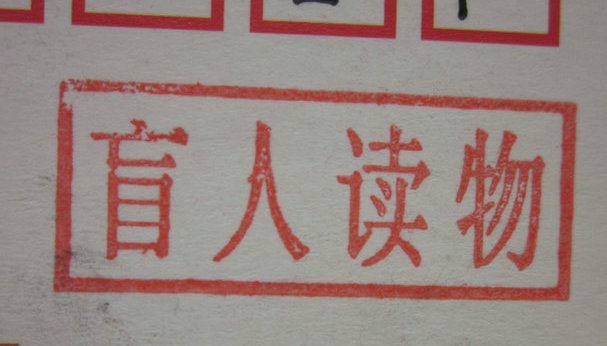 盲人读物